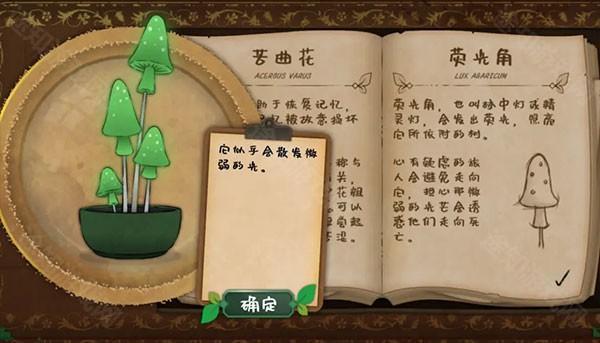 苦曲花
ACERBUS VARUS
助于恢复记忆,
忆被故意损坏
称与
花朝
可以
它似乎会散发微
弱的光。
确定
荧光角
LUX AGARICUM
荧光角,也叫林中灯或精
灵灯,会发出荧光,照亮
它所依附的树。
心有疑虑的旅
人会避免走向
它,担心那微
弱的光芒会诱
惑他们走向死
亡。